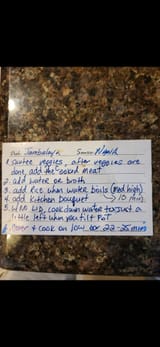 Dish Jambalaya Source NaNa
1. Sautee veggies, after veggies are
done, add the cooked meat
2. add water or broth
3. add Rice when water boils (med high)
4. add Kitchen bouquet → 10 min
5. W/NO LID, cook down water to just a
little left when you tilt Pot
6. Cover & cook on low for 22-25 mins